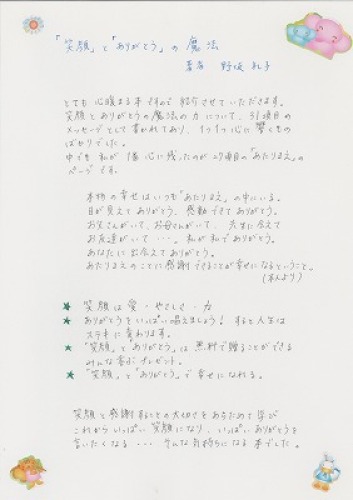 「笑顔」と「ありがとう」の魔法
著者 野坂 礼子
とても心暖まる本ですので紹介させていただきます。
笑顔とありがとうの魔法の力について、31項目の
メッセージとして書かれてあり、1つ1つ心に響くもの
ばかりでした。
中でも私が1番心に残ったのが27項目の「あたりまえ」の
ページです。
本物の幸せはいつも「あたりまえ」の中にいる。
目が見えてありがとう、感動できてありがとう。
お父さんがいて、お母さんがいて、先生に会えて
お友達がいて・・・。私が私でありがとう。
あなたに出会えてありがとう。
あたりまえのことに感謝できることが幸せになるということ。
(本より)
★ 笑顔は愛・やさしさ・力
★ ありがとうをいっぱい唱えましょう! すると人生は
ステキに変わります。
★ "笑顔"と"ありがとう"は無料で贈ることができる
みんな喜ぶプレゼント。
★ "笑顔"と"ありがとう"で幸せになれる。
笑顔と感謝することの大切さをあらためて学び
これからいっぱい笑顔になり、いっぱいありがとうを
言いたくなる・・・そんな気持ちになる本でした。